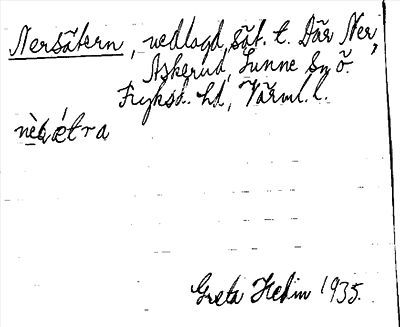 Nersätern, nedlagd sät. t. Där Ner,
Askerud, Sunne sn ö.
Fryksd. hd, Värml. l.
Greta Hedin 1935.